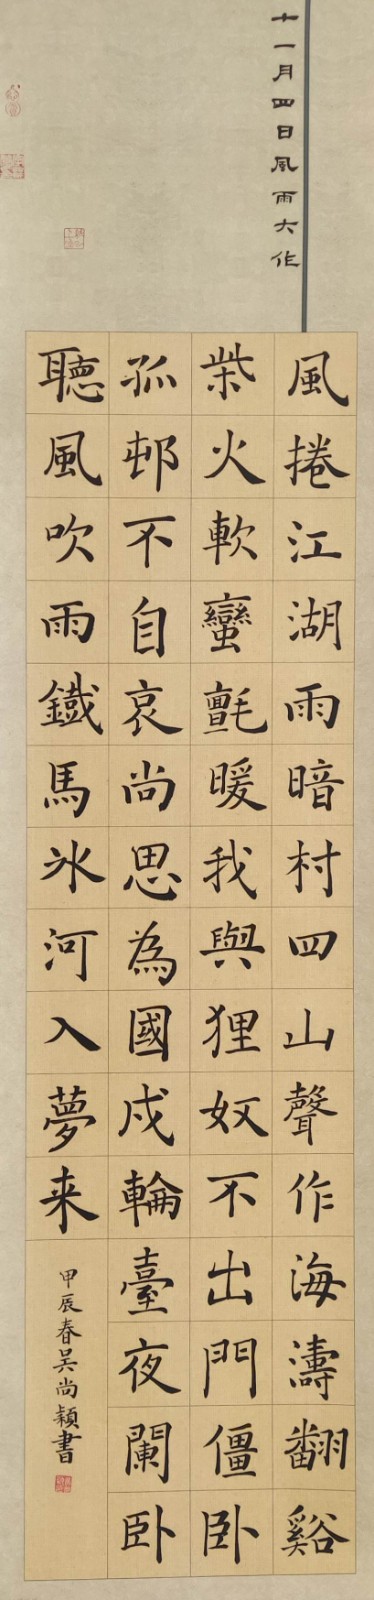 十一月四日風雨大作
風捲江湖雨暗村四山聲作海濤翻谿
柴火軟蠻氈暖我與狸奴不出門僵卧
孤邨不自哀尚思為國戍輪臺夜闌卧
聽風吹雨鐵馬冰河入夢来
甲辰春吴尚穎書